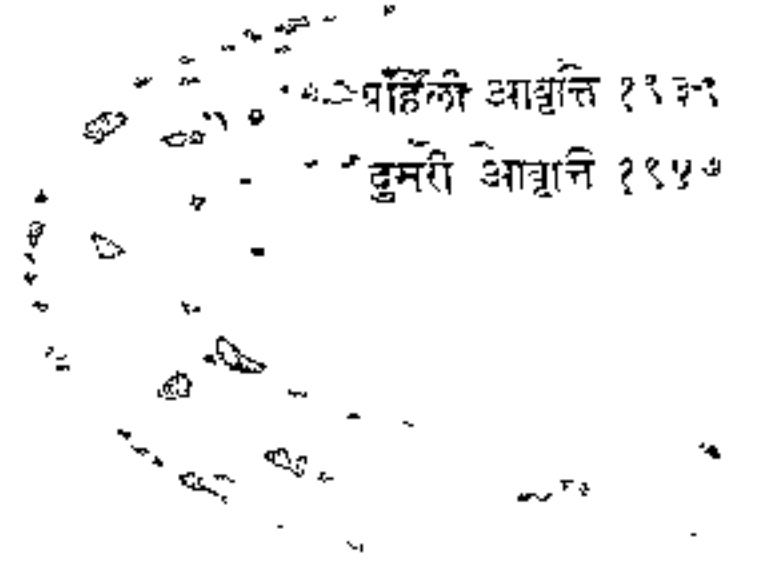 पहिली आवृत्ति १९३९
दुसरी आवृत्ति १९५७